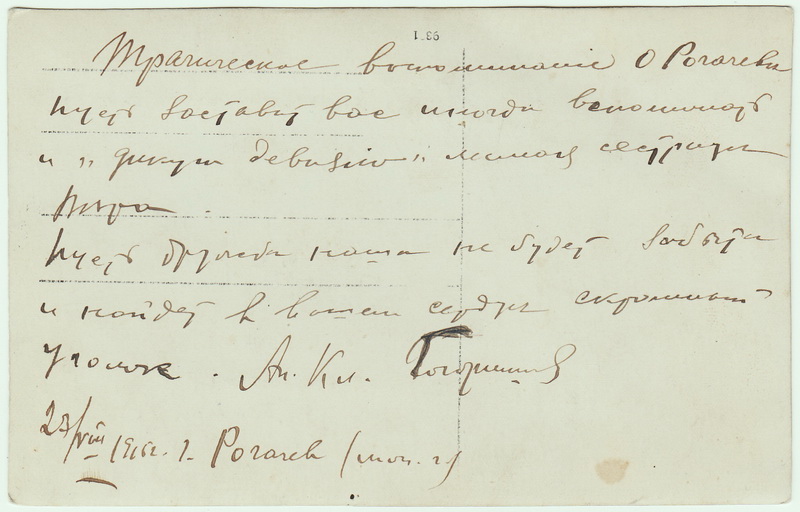 1 86
Трагическое воспоминание о Рогачеве
пусть заставит вас иногда вспоминать
и „дикую дивизию“ сестрицы
пусть дружба наша не будет забыта
и найдет в вашем сердце скромный
уголок. Ан. Кл.
27/VIII 1916 г. г. Рогачев (мог. г)